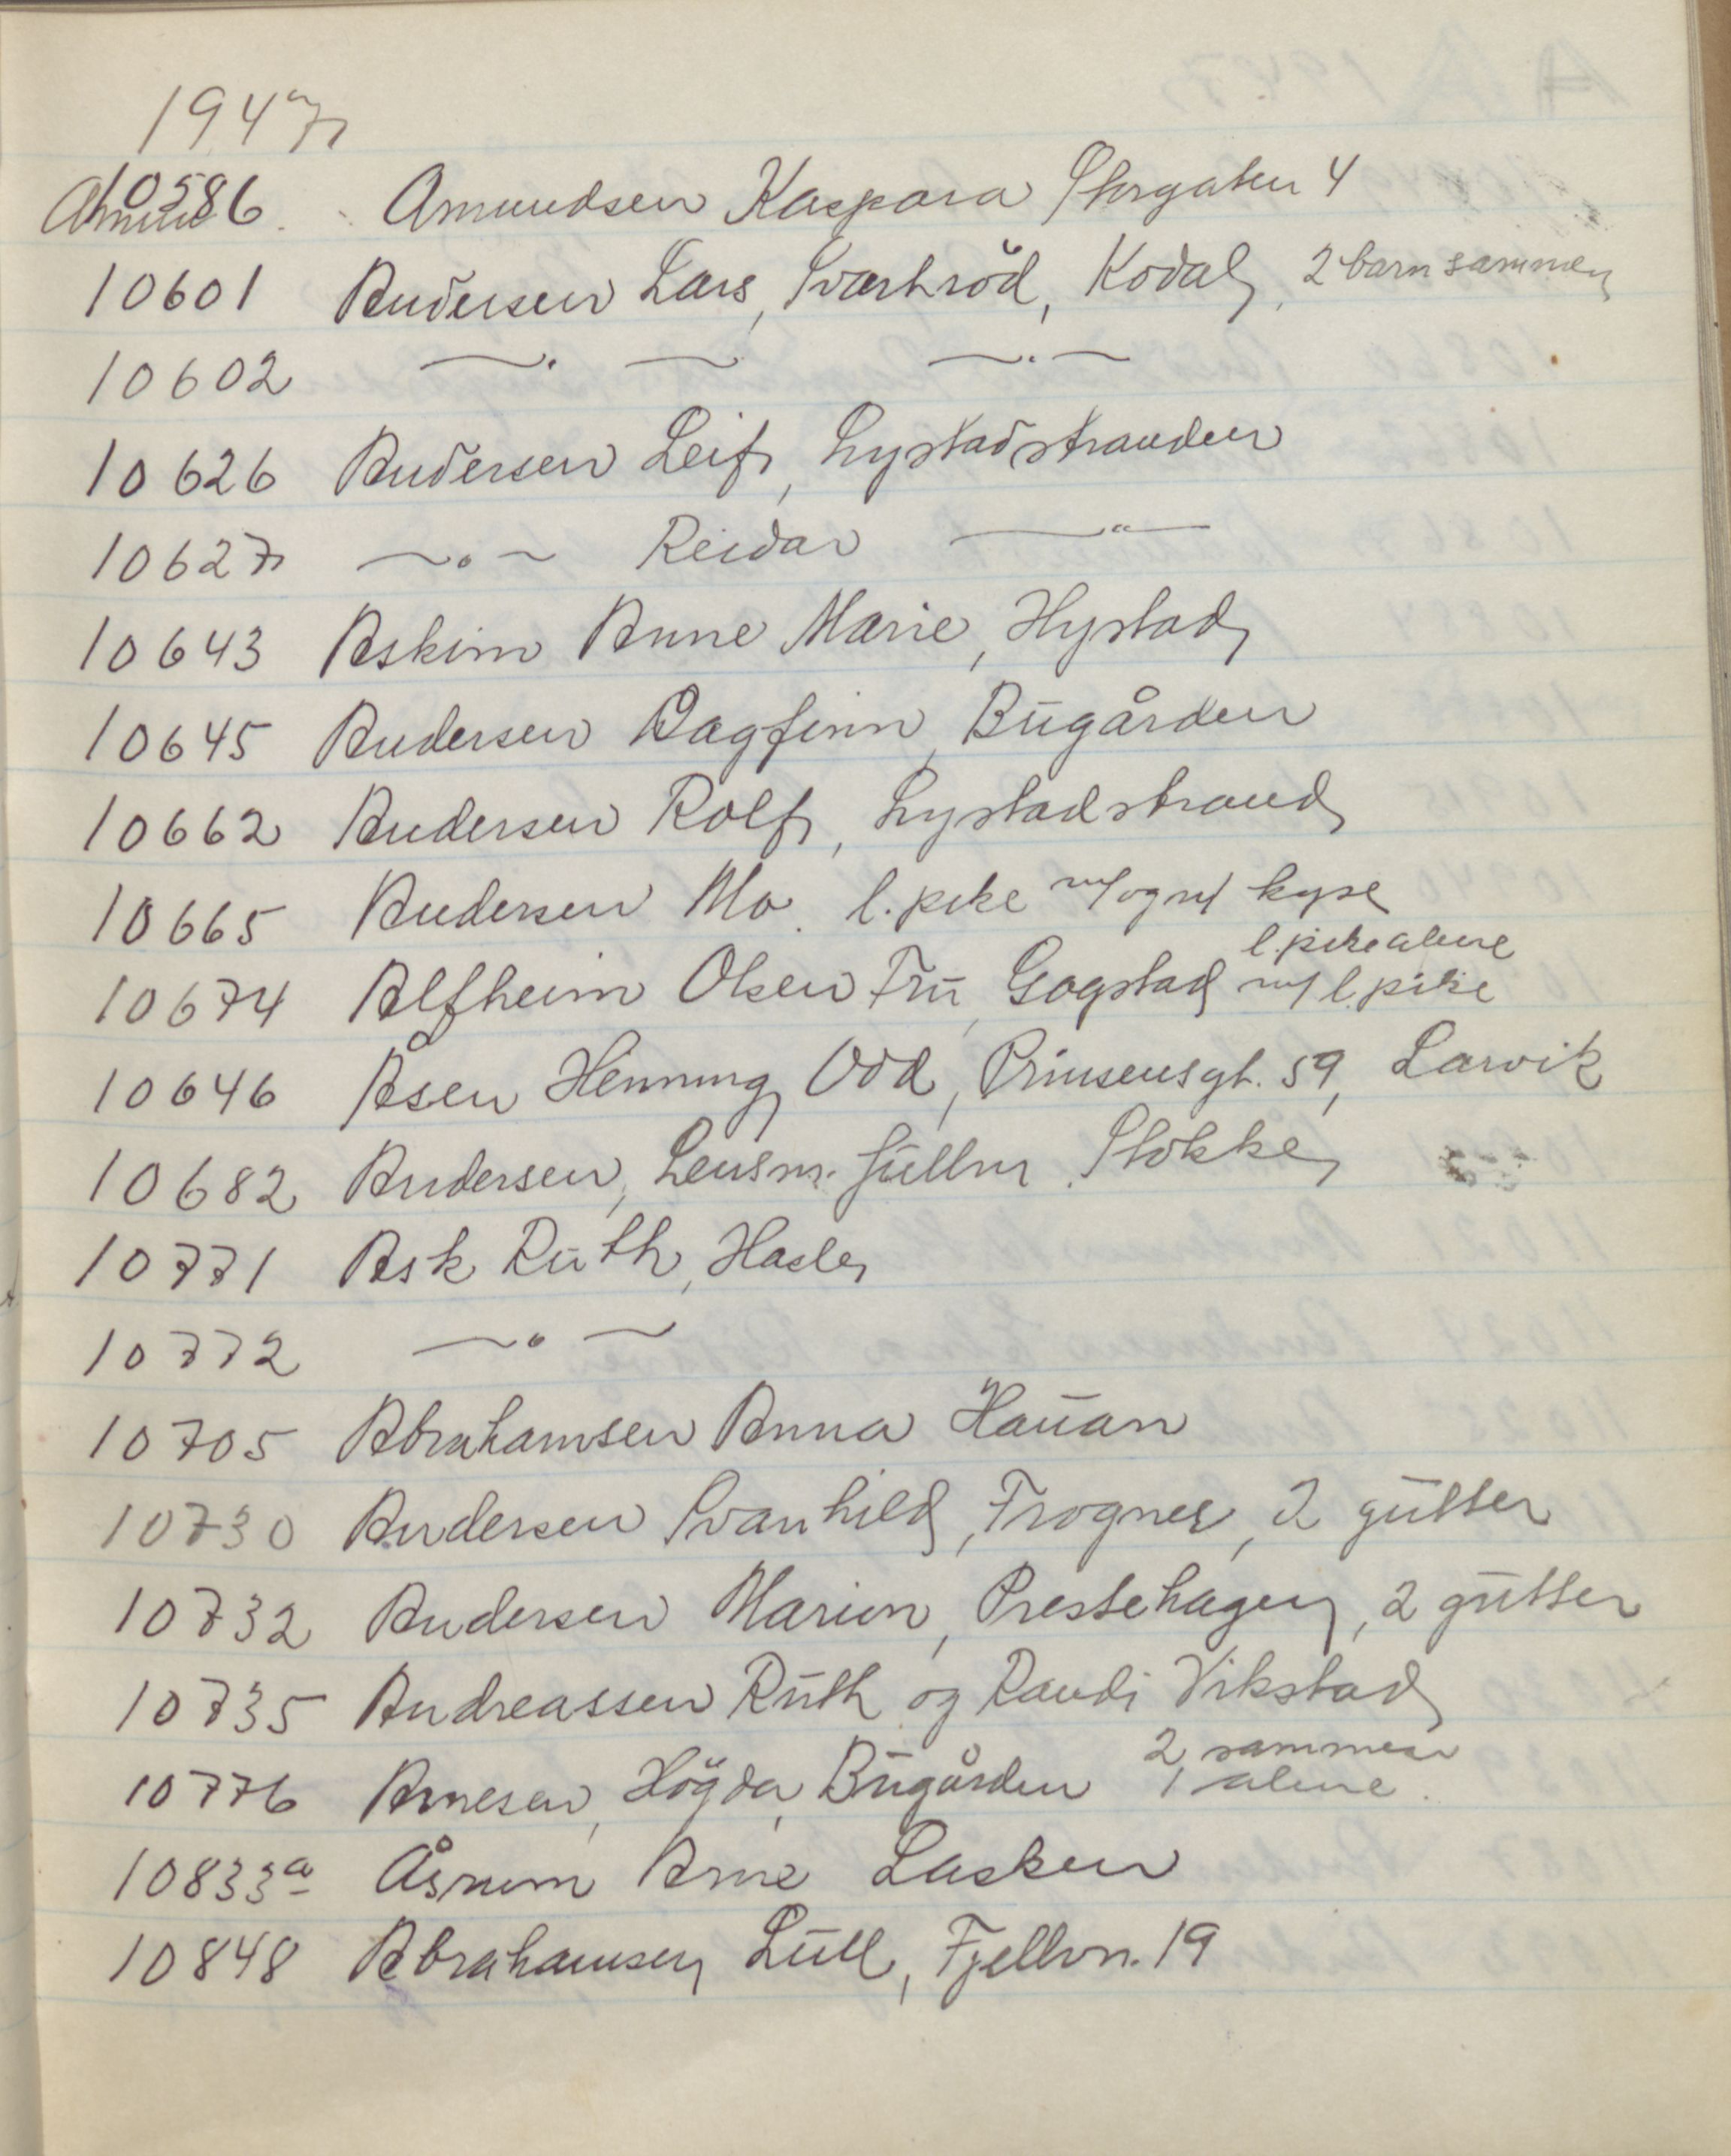 1947
10586 Amundsen Kaspara Storgaten 4
10601 Andersen Lars, Svartsröd, Kodal, 2 barn sammen
10602 —〃— —〃—
10626 Andersen Leif, Lystadstranden
10627 —〃— Reidar —〃—
10643 Askim Anne Marie, Hystad
10645 Andersen Dagfinn, Bugården
10662 Andersen Rolf, Lystadstrand
10665 Andersen Mo. l. pike m/ og u/ kyse
l. pike alene
10674 Alfheim Olsen Fru, Gogstad m/ l. pike
10646 Åsen Henning Odd, Prinsensgt. 59, Larvik
10682 Andersen, Lensm. fullm. Stokke
10771 Ask Ruth, Hasle
10772 —〃—
10705 Abrahamsen Anna Hauan
10730 Andersen Svanhild, Frogner, 2 gutter
10732 Andersen Marion, Prestehagen, 2 gutter
10735 Andreassen Ruth og Randi Vikstad
2 sammen
10776 Arnesen, Högda, Bugården 1 alene.
10833a Åsrum Arne Lasken
10848 Abrahamsen Lull, Fjellvn. 19